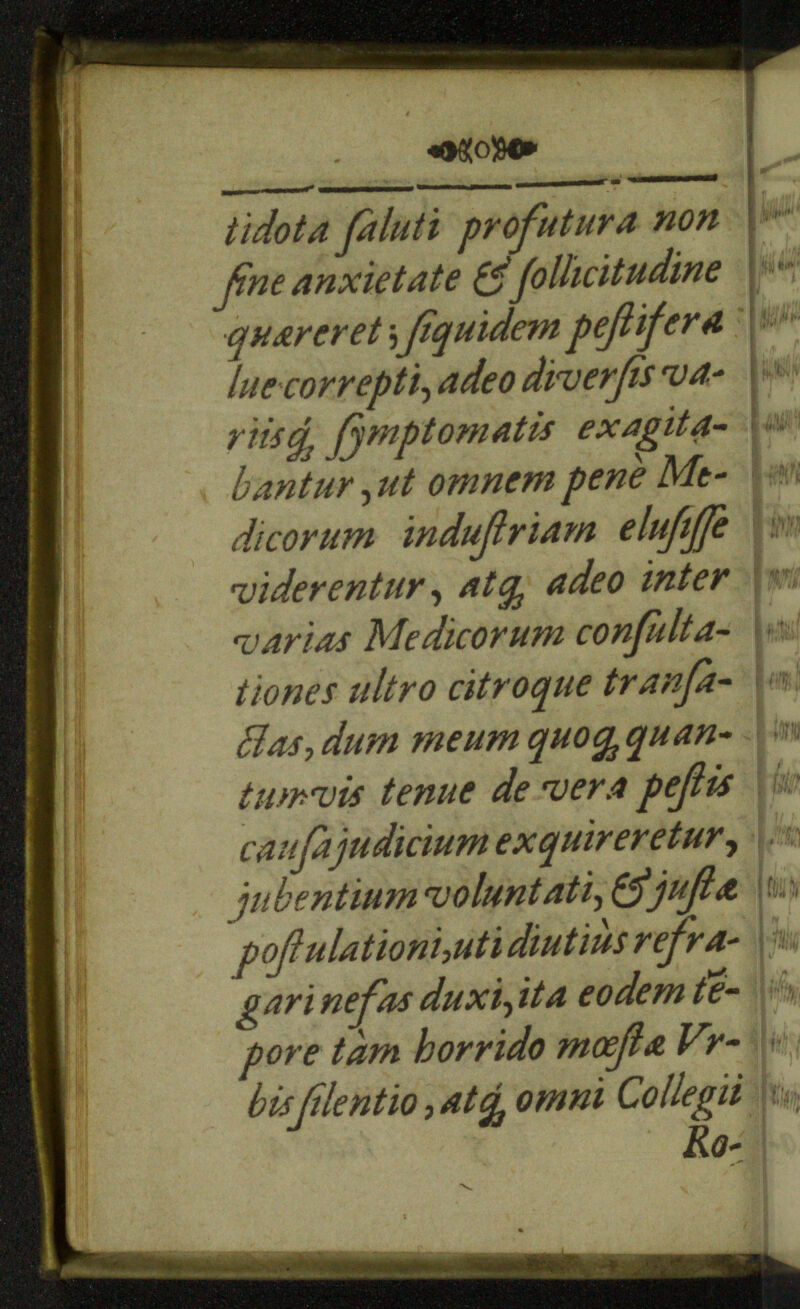 tidota ſaluti profutura non
ſine anxietate & ſollicitudine
quæreret; ſiquidem peſtifera
lue correpti, adeo diverſis va-
riisq́; ſymptomatis exagita-
bantur, ut omnem penè Me-
dicorum induſtriam eluſiſſe
viderentur, atq; adeo inter
varias Medicorum conſulta-
tiones ultro citroque tranſa-
ctas, dum meum quoq; quan-
tumvis tenue de vera peſtis
cauſa judicium exquireretur,
jubentium voluntati, & juſtæ
poſtulationi, uti diutiùs refra-
gari nefas duxi, ita eodem tē-
pore tàm horrido mœſtæ Vr-
bis ſilentio, atq́; omni Collegii
Ro-